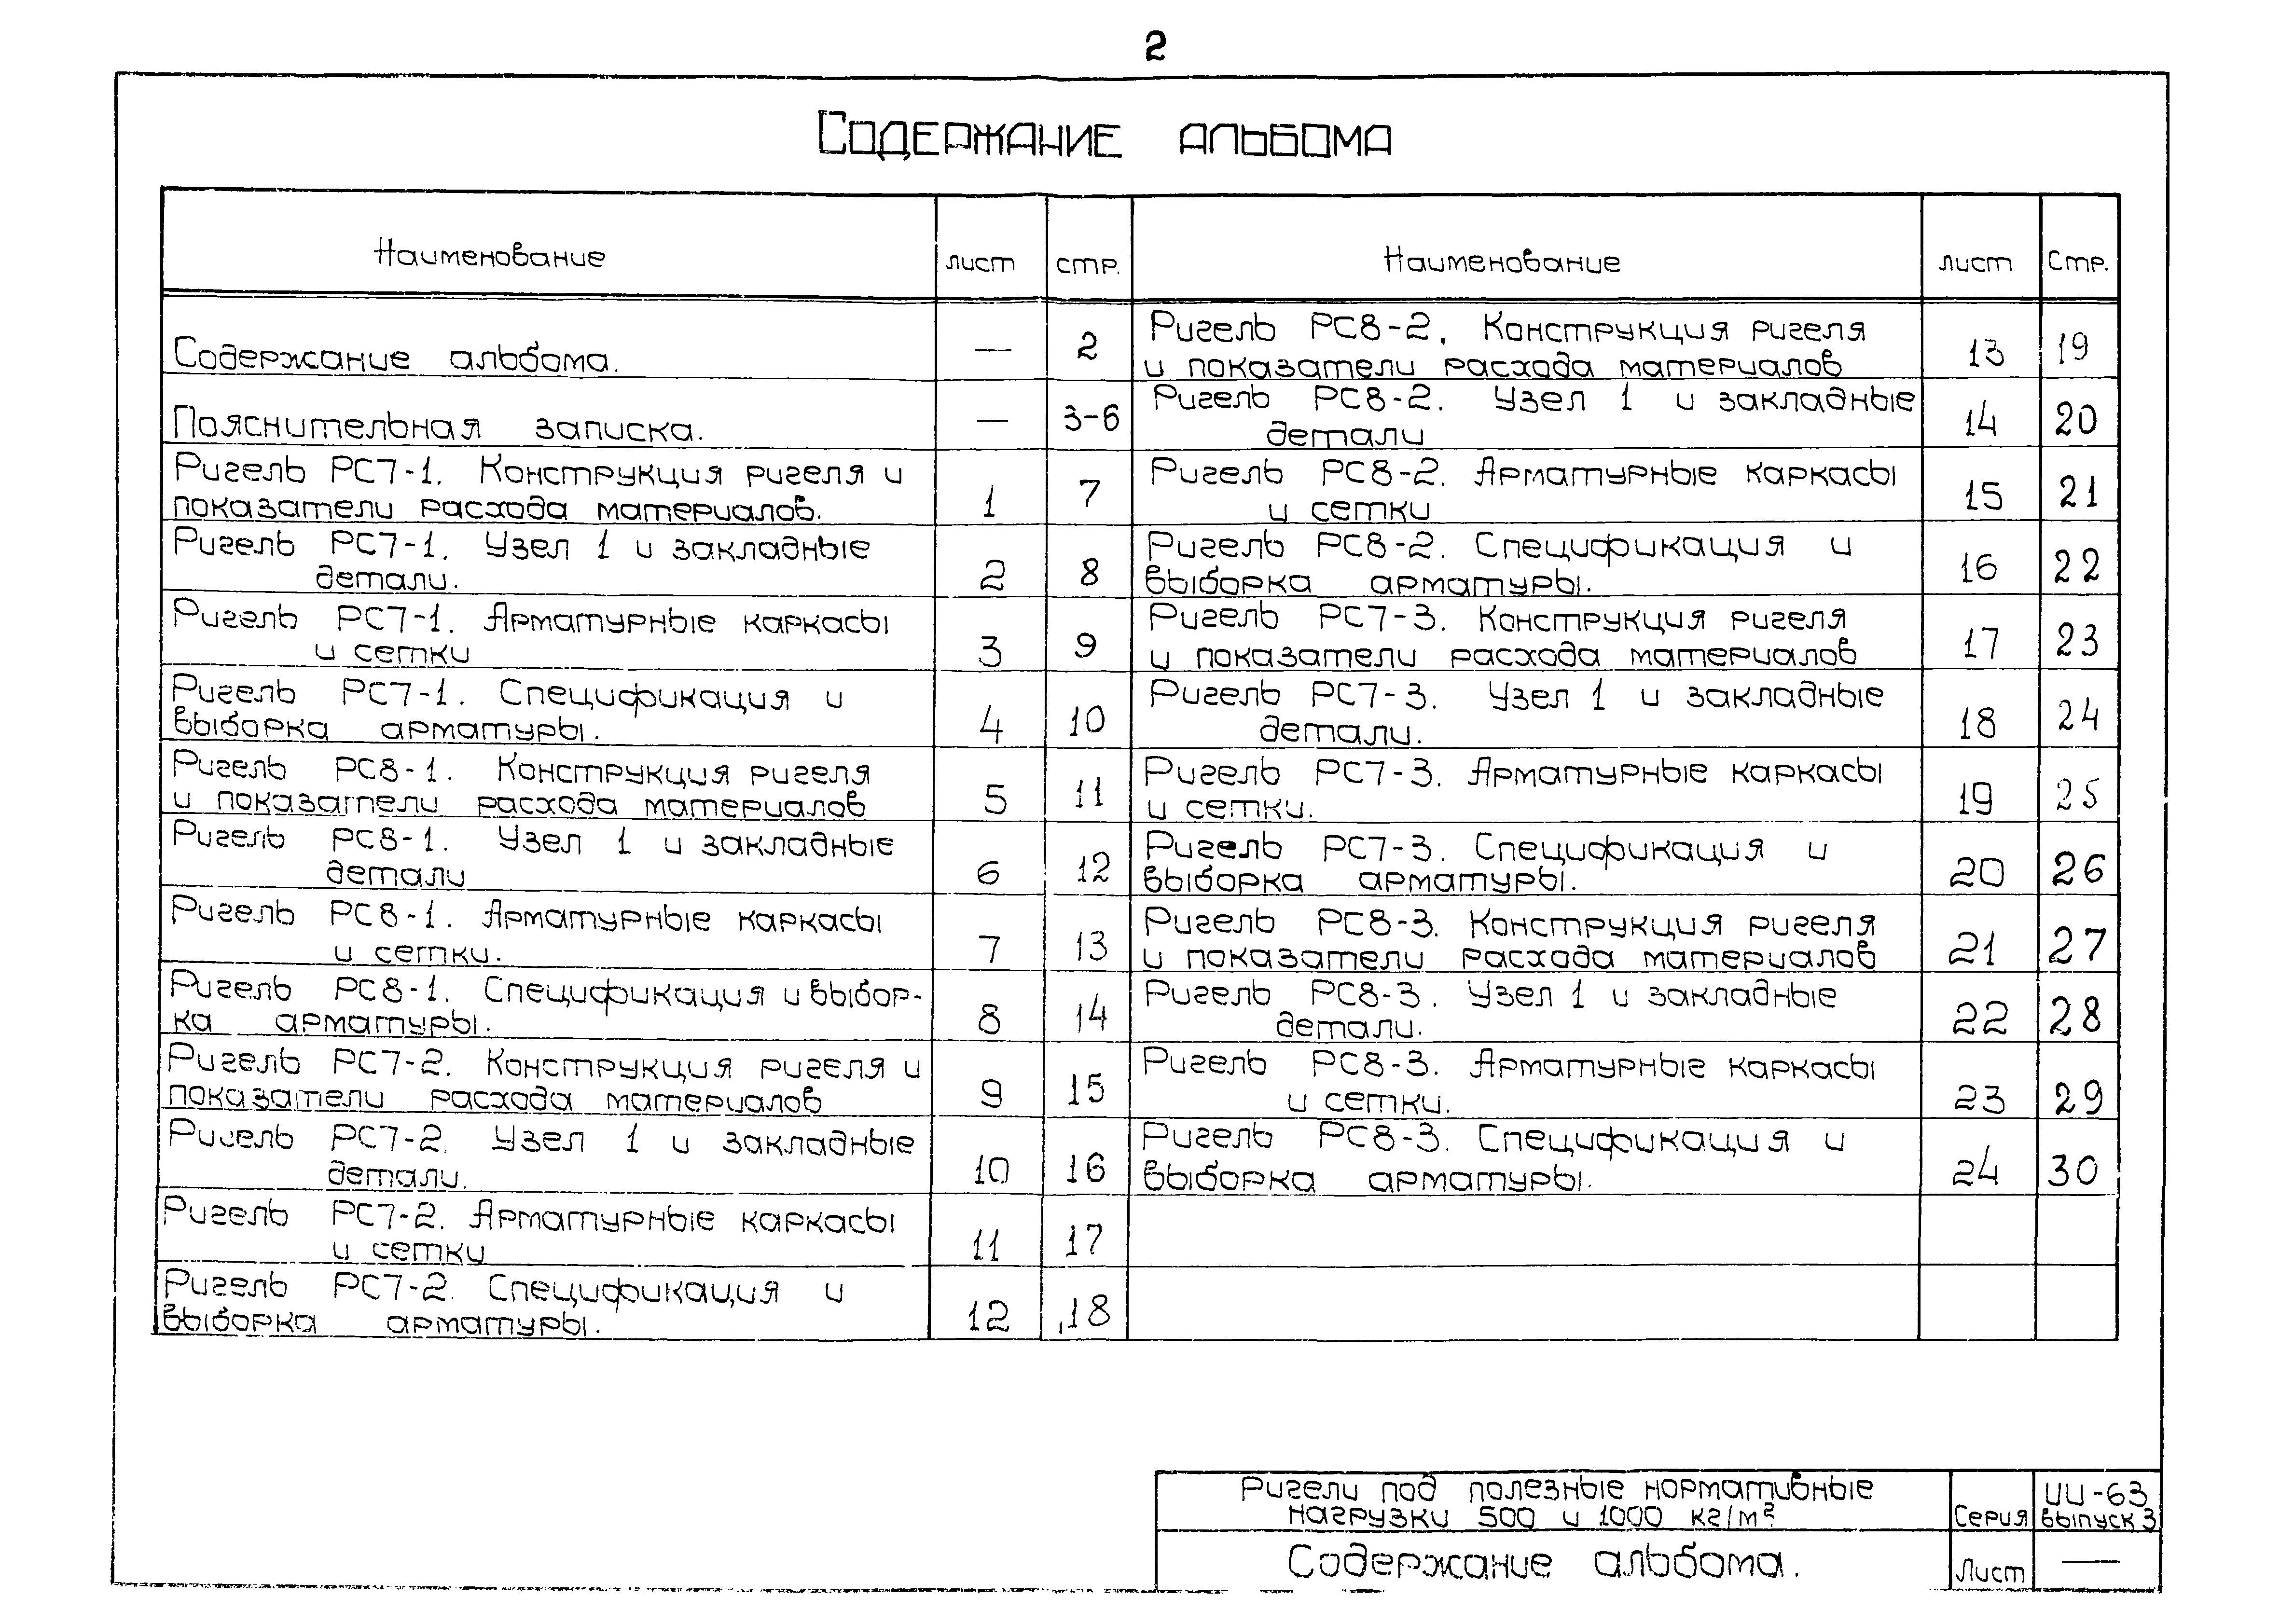 2
Содержание альбома
Наименование лист стр.
Содержание альбома. — 2
Пояснительная записка. — 3-6
Ригель РС7-1. Конструкция ригеля и
показатели расхода материалов. 1 7
Ригель РС7-1. Узел 1 и закладные
детали. 2 8
Ригель РС7-1. Арматурные каркасы
и сетки 3 9
Ригель РС7-1. Спецификация и
выборка арматуры. 4 10
Ригель РС8-1. Конструкция ригеля
и показатели расхода материалов 5 11
Ригель РС8-1. Узел 1 и закладные
детали 6 12
Ригель РС8-1. Арматурные каркасы
и сетки. 7 13
Ригель РС8-1. Спецификация и выбор-
ка арматуры. 8 14
Ригель РС7-2. Конструкция ригеля и
показатели расхода материалов 9 15
Ригель РС7-2. Узел 1 и закладные
детали. 10 16
Ригель РС7-2. Арматурные каркасы
и сетки 11 17
Ригель РС7-2. Спецификация и
выборка арматуры. 12 18
Наименование лист Стр.
Ригель РС8-2. Конструкция ригеля
и показатели расхода материалов 13 19
Ригель РС8-2. Узел 1 и закладные
детали 14 20
Ригель РС8-2. Арматурные каркасы
и сетки 15 21
Ригель РС8-2. Спецификация и
выборка арматуры. 16 22
Ригель РС7-3. Конструкция ригеля
и показатели расхода материалов 17 23
Ригель РС7-3. Узел 1 и закладные
детали. 18 24
Ригель РС7-3. Арматурные каркасы
и сетки. 19 25
Ригель РС7-3. Спецификация и
выборка арматуры. 20 26
Ригель РС8-3. Конструкция ригеля
и показатели расхода материалов 21 27
Ригель РС8-3. Узел 1 и закладные
детали. 22 28
Ригель РС8-3. Арматурные каркасы
и сетки. 23 29
Ригель РС8-3. Спецификация и
выборка арматуры. 24 30
Ригели под полезные нормативные
нагрузки 500 и 1000 кг/м²
Серия ИИ-63
выпуск 3
Содержание альбома.
Лист —